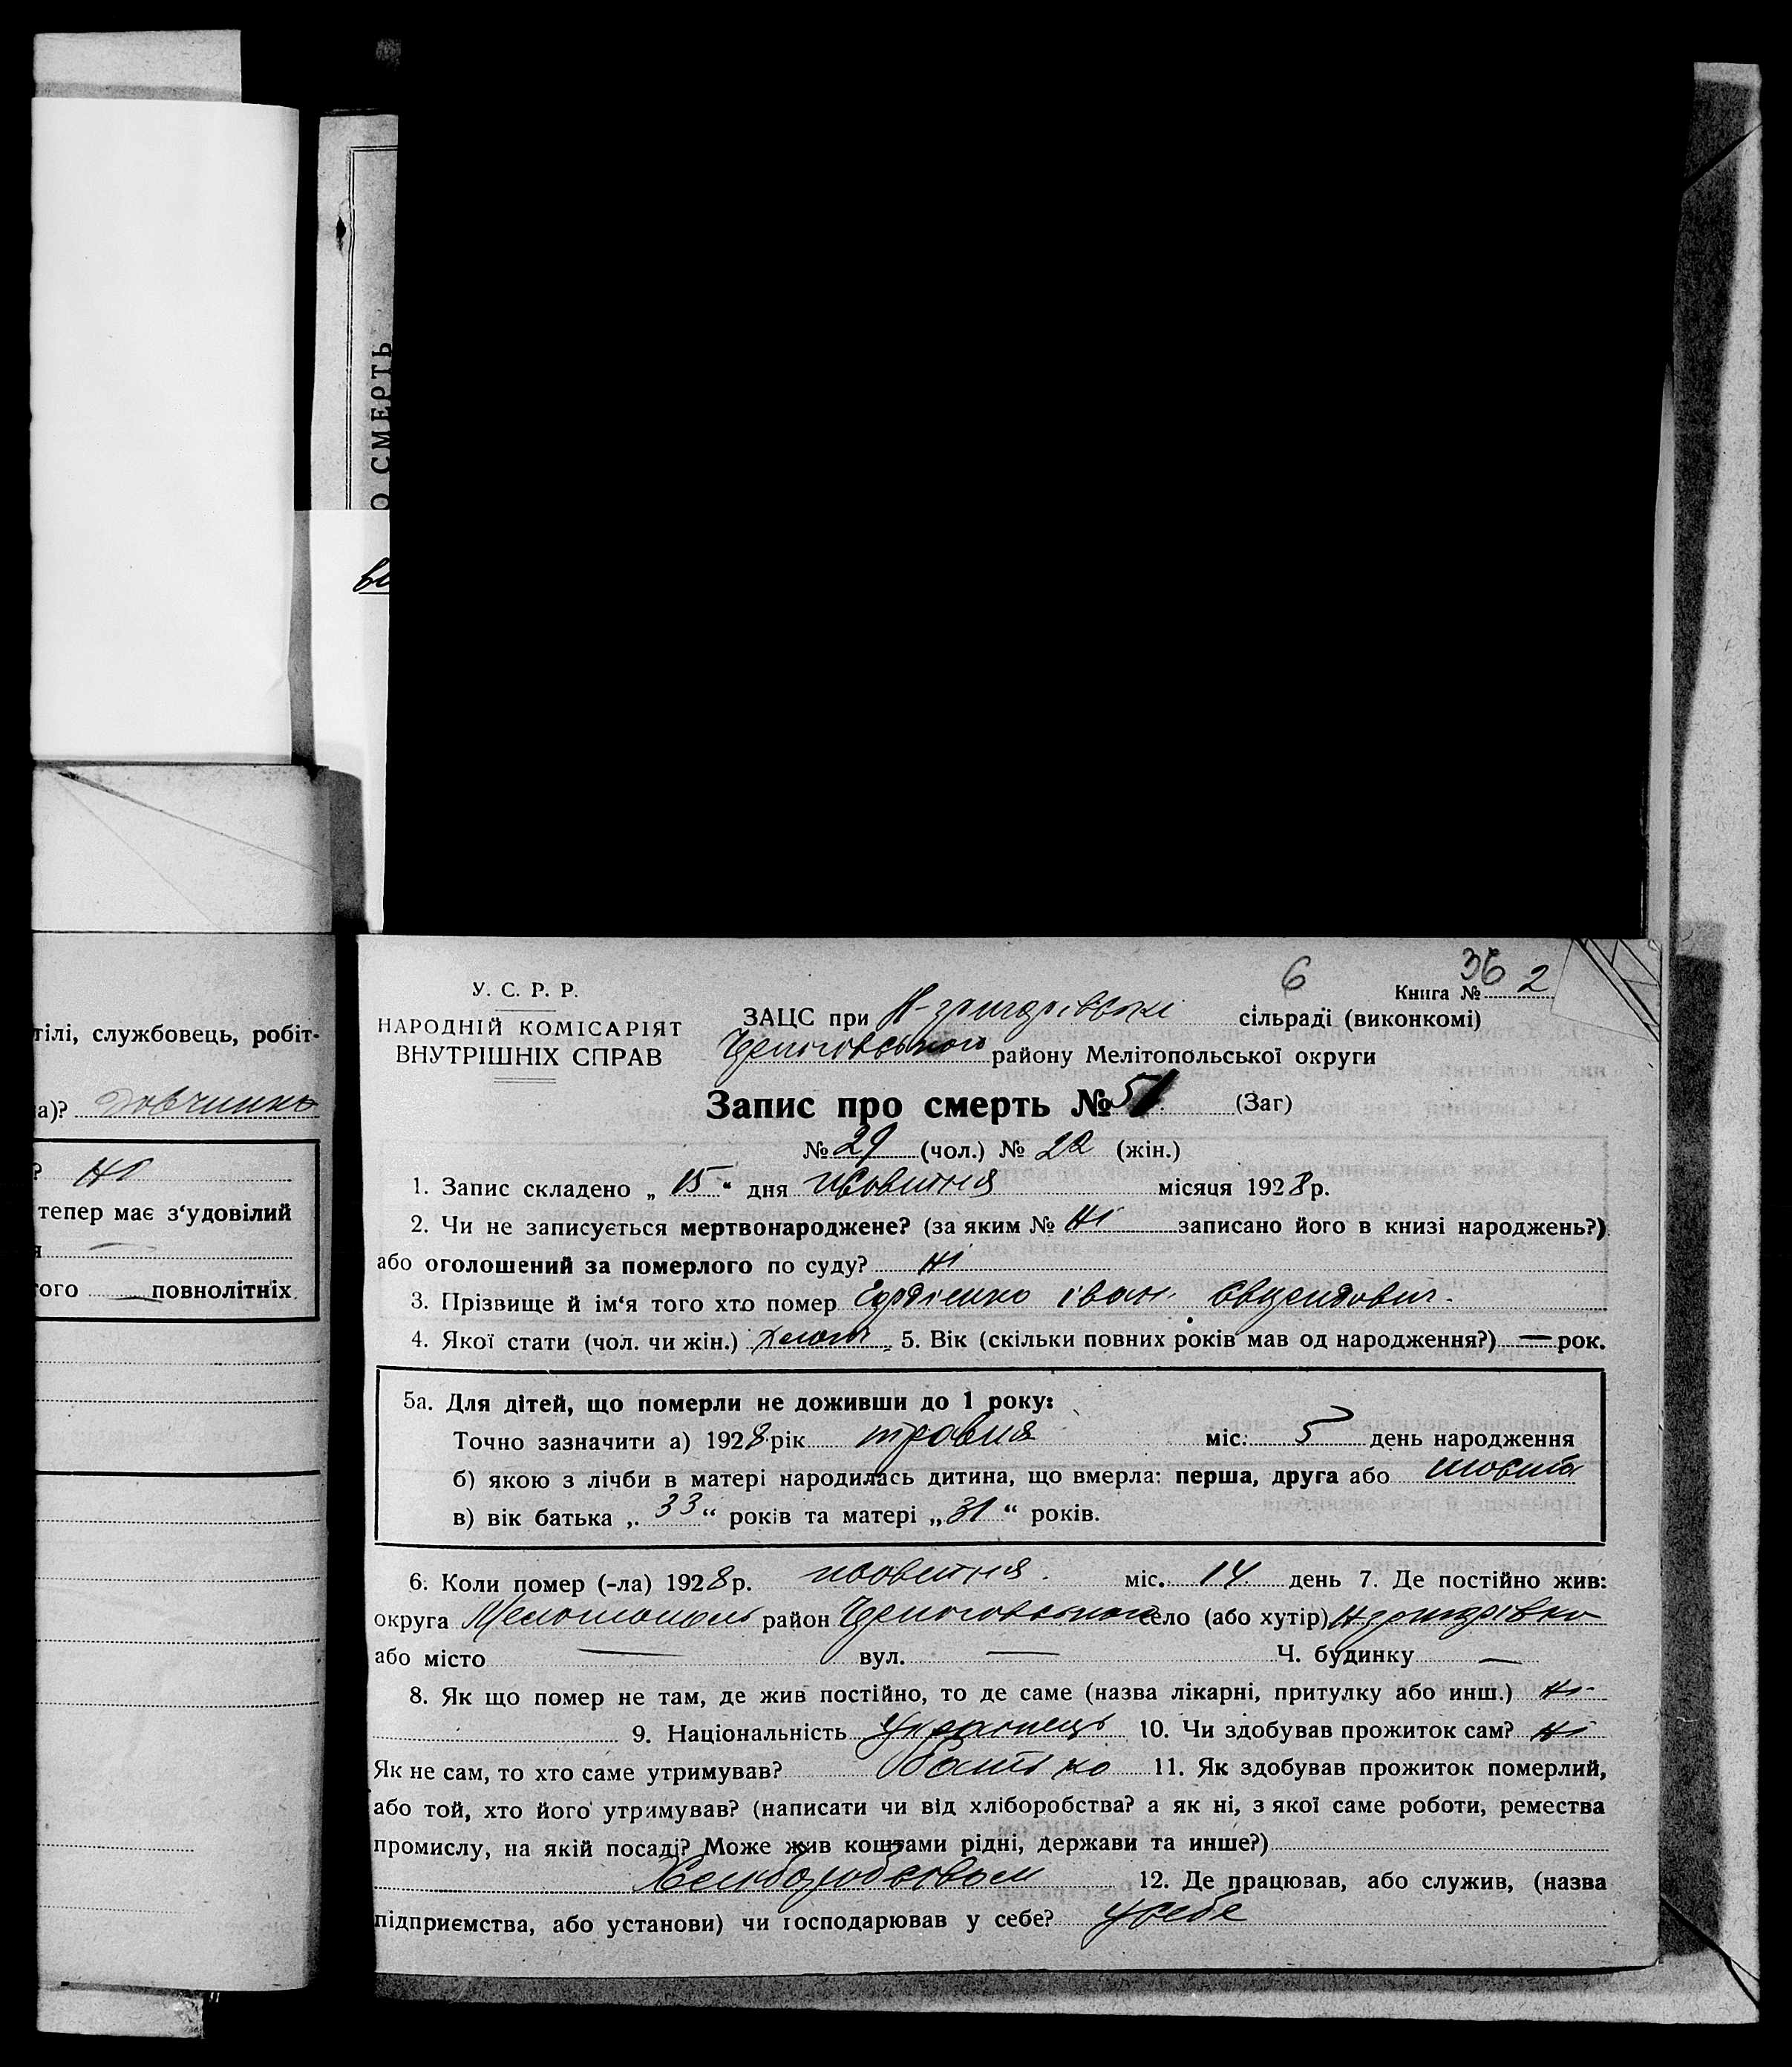 О СМЕРТЬ
тілі, службовець, робіт-
а)?
? Ні
тепер має з'удовілий
я —
того — повнолітніх.
6 36
У. С. Р. Р.
Книга № 2
НАРОДНІЙ КОМІСАРІЯТ
ВНУТРІШНІХ СПРАВ
ЗАЦС при сільраді (виконкомі)
району Мелітопольської округи
Запис про смерть № 51 (Заг)
№ 29 (чол.) № 22 (жін.)
1. Запис складено „ 15 “ дня жовтня місяця 1928 р.
2. Чи не записується мертвонароджене? (за яким № Ні записано його в книзі народжень?)
або оголошений за померлого по суду? Ні
3. Прізвище й ім'я того хто помер Іван
4. Якої стати (чол. чи жін.) 5. Вік (скільки повних років мав од народження?) — рок.
5а. Для дітей, що померли не доживши до 1 року:
Точно зазначити а) 1928 рік травня міс. 5 день народження
б) якою з лічби в матері народилась дитина, що вмерла: перша, друга або
в) вік батька „ 33 “ років та матері „ 31 “ років.
6. Коли помер (-ла) 1928 р. жовтня міс. 14 день 7. Де постійно жив:
округа район село (або хутір)
або місто — вул. — Ч. будинку —
8. Як що помер не там, де жив постійно, то де саме (назва лікарні, притулку або инш.) Ні
9. Національність Українець 10. Чи здобував прожиток сам? Ні
Як не сам, то хто саме утримував? Батько 11. Як здобував прожиток померлий,
або той, хто його утримував? (написати чи від хліборобства? а як ні, з якої саме роботи, ремества
промислу, на якій посаді? Може жив коштами рідні, держави та инше?)
12. Де працював, або служив, (назва
підприємства, або установи) чи господарював у себе? у себе